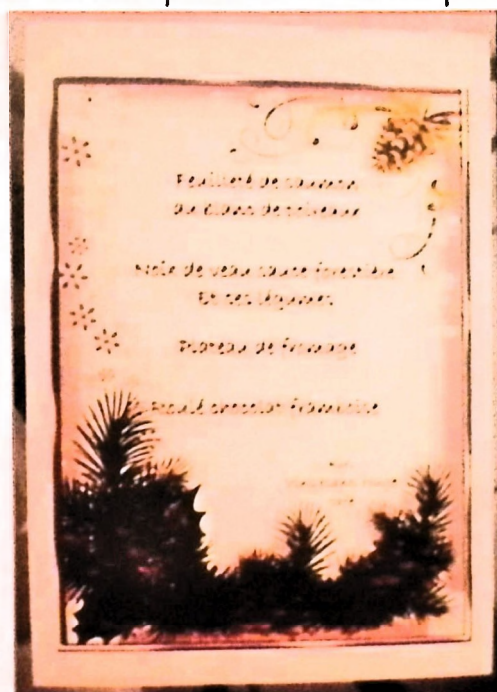 Feuilleté de saumon
au blanc de poireaux
Noix de veau sauce forestière
Et ses légumes
Plateau de fromage
Moulé chocolat framboise